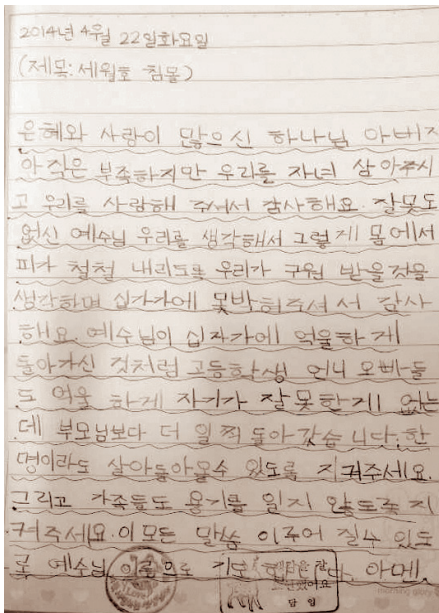 2014년 4월 22일화요일
(제목: 세월호 침몰)
은혜와 사랑이 많으신 하나님 아버지
아직은 부족하지만 우리를 자녀 삼아주시
고 우리를 사랑해 주셔서 감사해요. 잘못도
없신 예수님 우리를 생각해서 그렇게 몸에서
피가 철철 내리도록 우리가 구원 받을것을
생각하며 십자가에 못박혀주셔서 감사
해요. 예수님이 십자가에 억울하게
돌아가신 것처럼 고등학생 언니 오빠들
도 억울 하게 자기가 잘못한게 없는
데 부모님보다 더 일찍 돌아갔습니다. 한
명이라도 살아돌아올수 있도록 지켜주세요.
그리고 가족들도 용기를 잃지 않도록 지
켜주세요. 이 모든 말씀 이루어 질수 있도
록 예수님 이름으로 기도 합니다. 아멘
담임